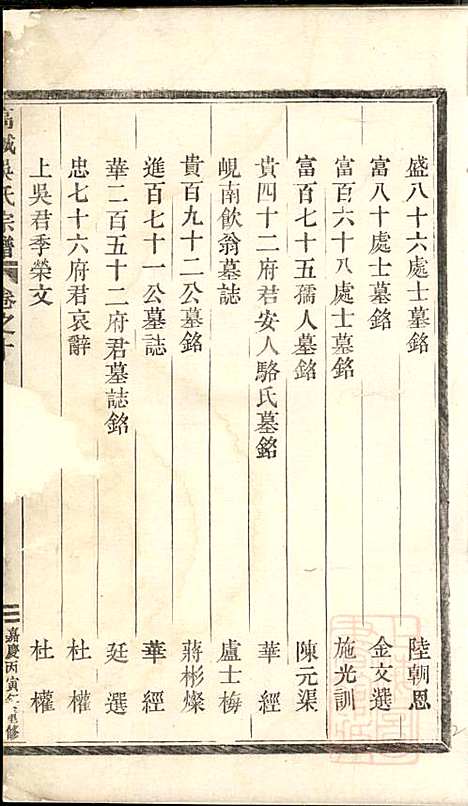 盛八十六處士墓銘 陸朝恩
富八十處士墓銘 金文選
富百六十八處士墓銘 施光訓
富百七十五孺人墓銘 陳元渠
貴四十二府君安人駱氏墓銘 華經
峴南飲翁墓誌 盧士梅
貴百九十二公墓銘 蔣彬燦
進百七十一公墓誌 華經
華二百五十二府君墓誌銘 廷選
忠七十六府君哀辭 杜權
上吳君季榮文 杜權
吳氏宗譜 卷之十 二 嘉慶丙寅 修